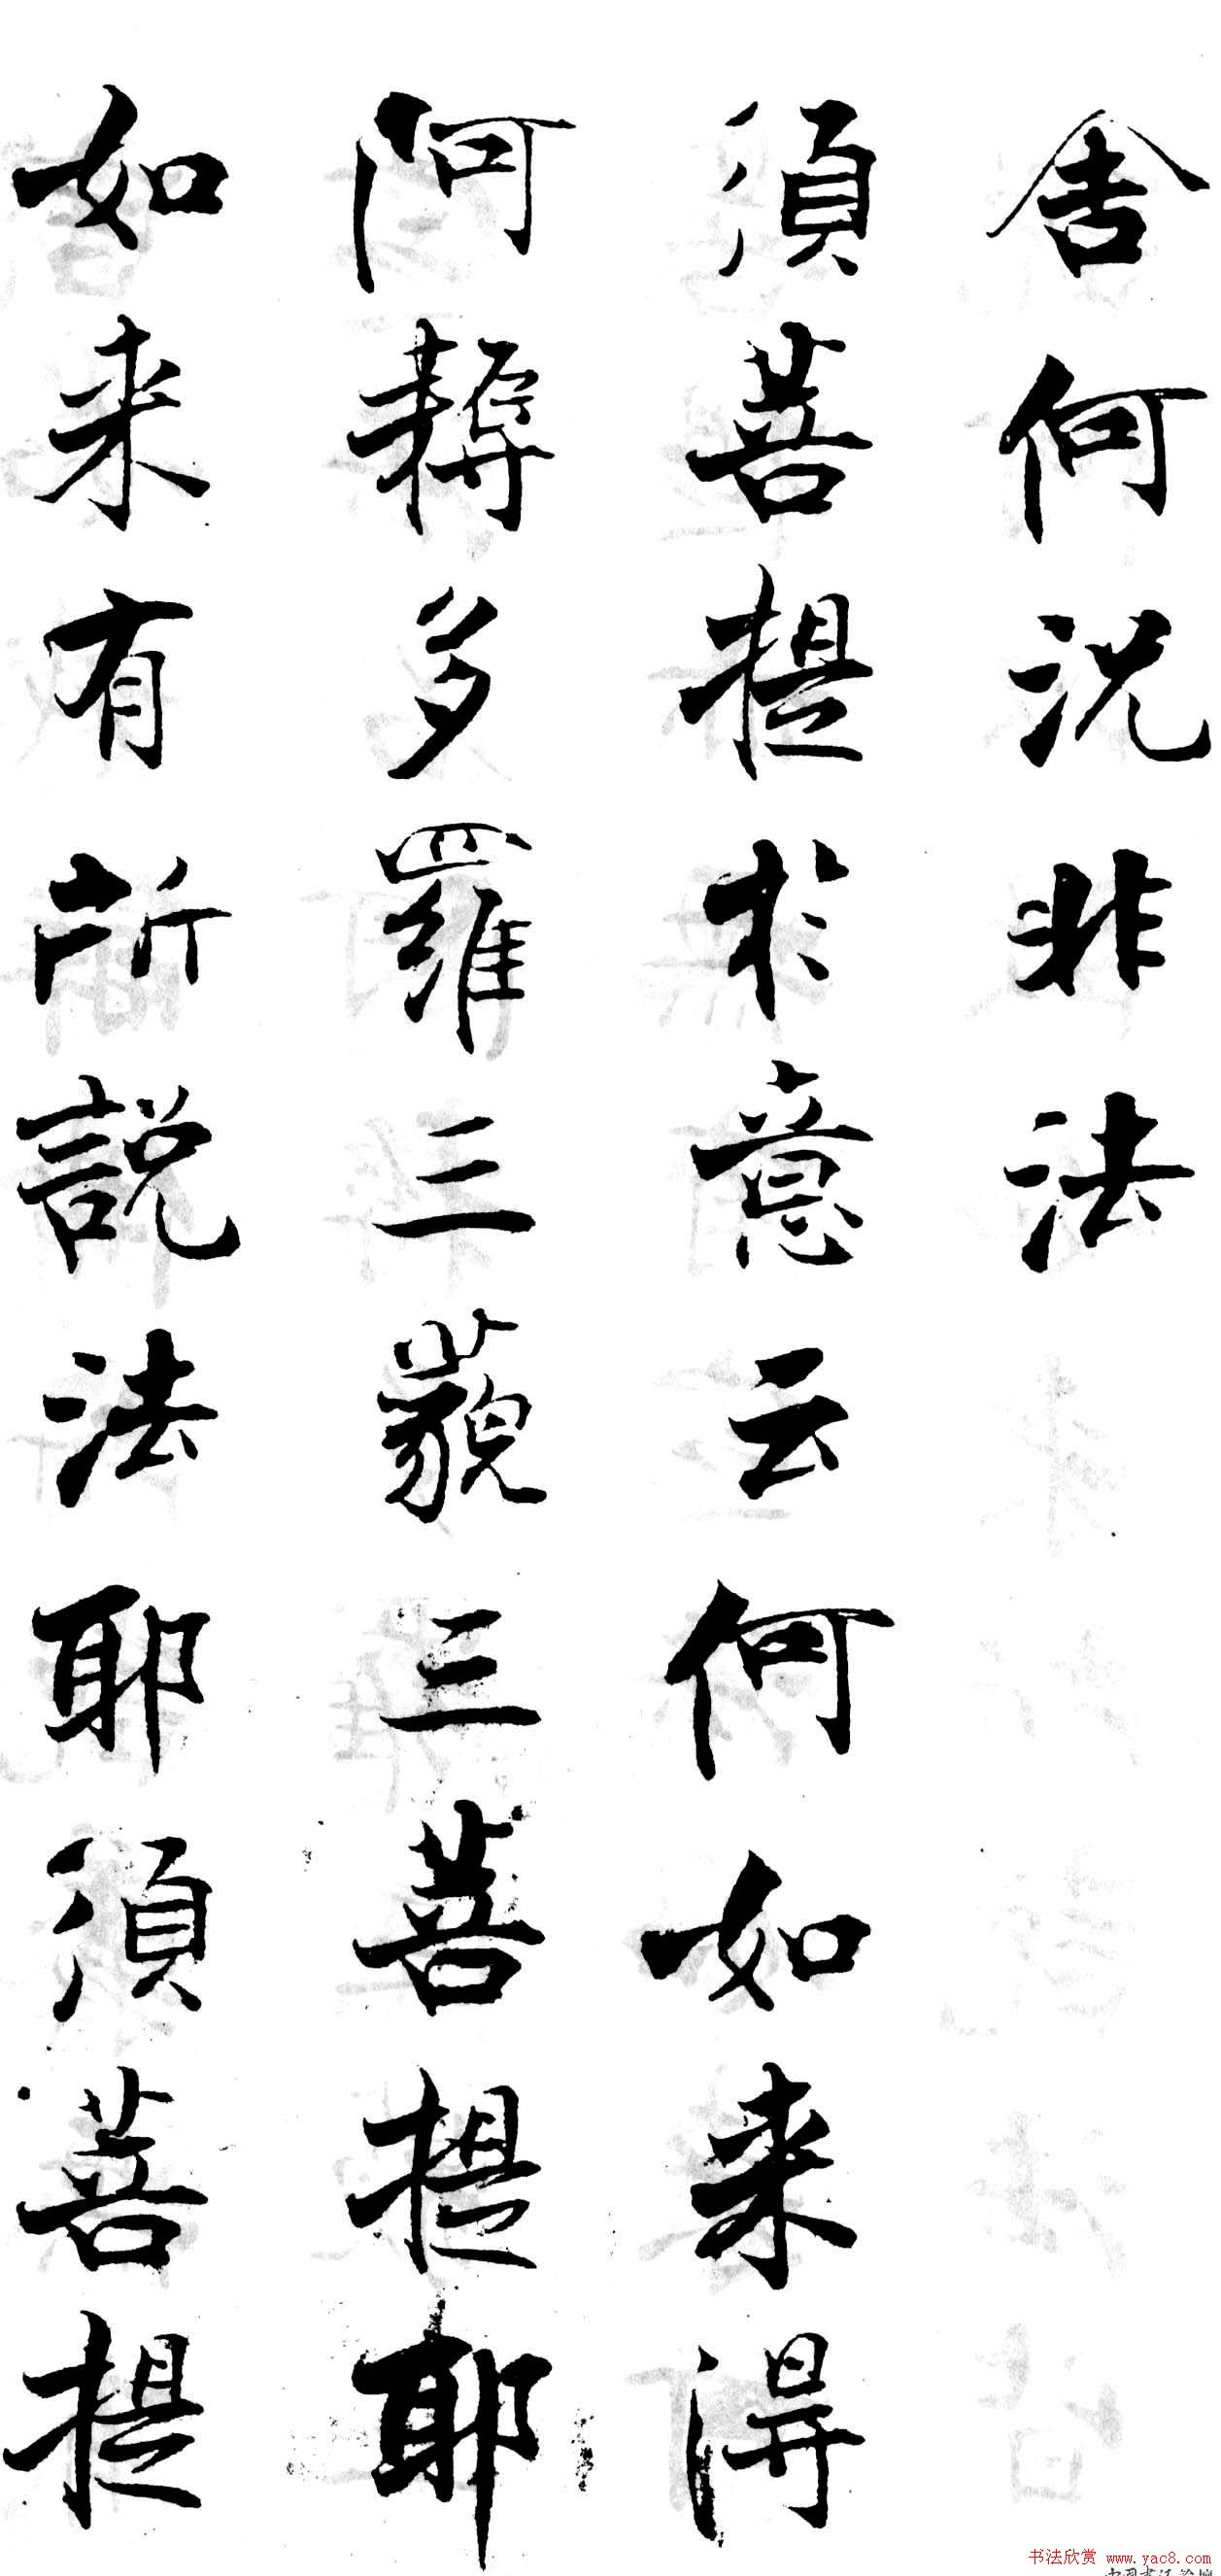 舍何況非法
須菩提於意云何如来得
阿耨多羅三藐三菩提耶
如来有所説法耶須菩提
书法欣赏 www.yac8.com